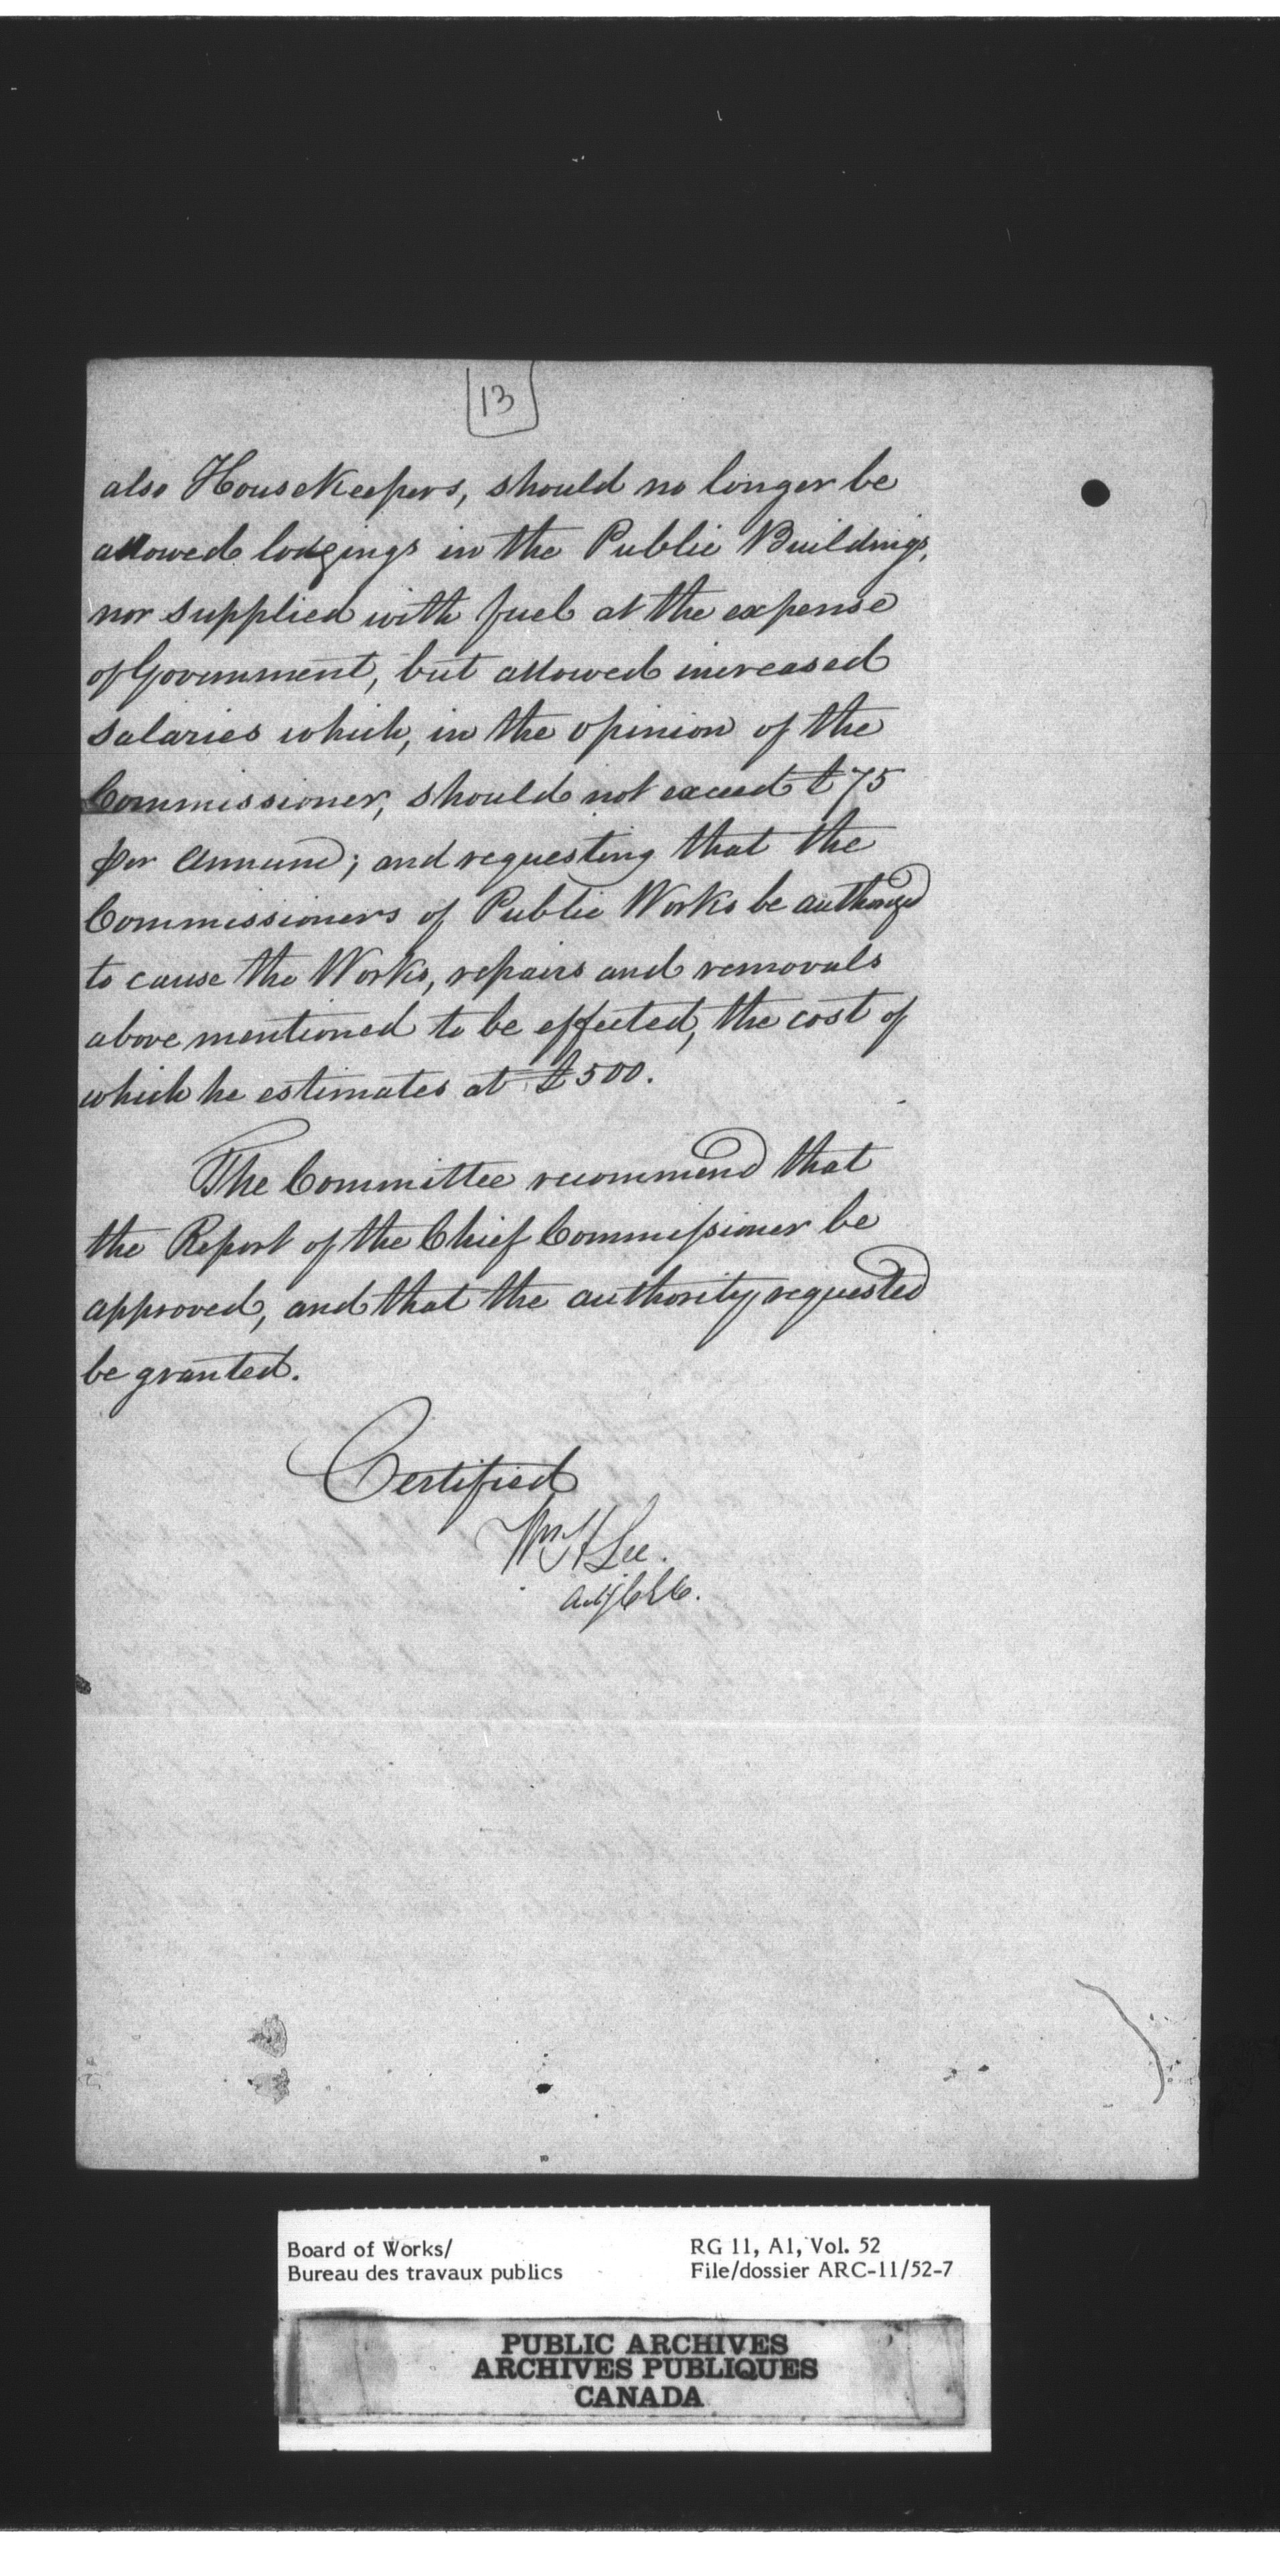 13
also HouseKeepers, should no longer be
allowed lodgings in the Public Buildings,
nor supplied with fuel at the expense
of Government, but allowed increased
salaries which, in the opinion of the
Commissioner, should not exceed £75
per Annum; and requesting that the
Commissioners of Public Works be authorized
to cause the Works, repairs and removals
above mentioned to be effected, the cost of
which he estimates at £500.
The Committee recommend that
the Report of the Chief Commissioner be
approved, and that the authority requested
be granted.
Certified
Wm H Lee.
Actg C E C.
Board of Works/
Bureau des travaux publics
RG 11, A1, Vol. 52
File/dossier ARC-11/52-7
PUBLIC ARCHIVES
ARCHIVES PUBLIQUES
CANADA